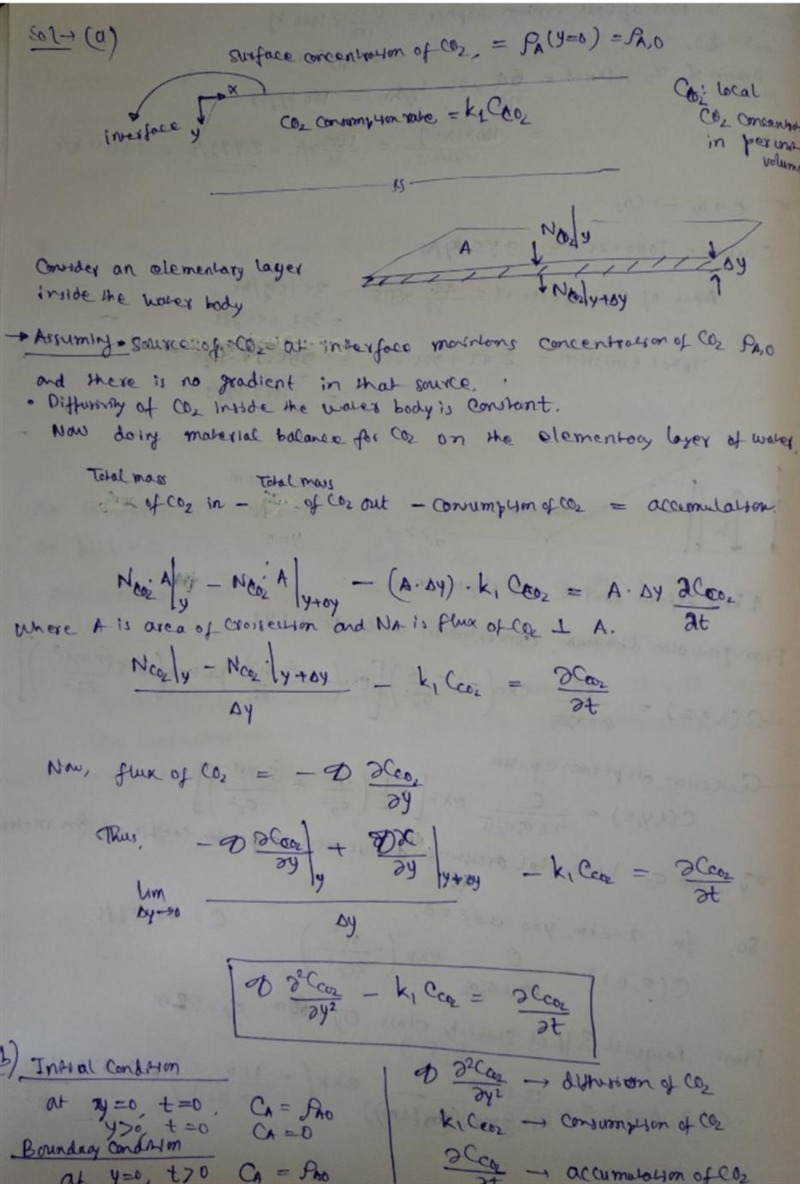 Sol → (a)
Surface concentration of CO₂, = ρA(y=0) = ρA,0
x
interface
y
CO₂ Consumption rate = k₁ C_CO₂
C_CO₂: local
CO₂ concent
in per uni
volum
A
N_CO₂|y
Δy
N_CO₂|y+Δy
Consider an elementary layer
inside the water body
→ Assuming • Source of CO₂ at interface maintions concentration of CO₂ ρA,0
and there is no gradient in that source.
• Diffusivity of CO₂ inside the water body is constant.
Now doing material balance for CO₂ on the elementary layer of water.
Total mass of CO₂ in − Total mass of CO₂ out − Consumption of CO₂ = accumulation.
N_CO₂·A|y − N_CO₂·A|y+Δy − (A·Δy)·k₁ C_CO₂ = A·Δy ∂C_CO₂/∂t
Where A is area of crossection and NA is flux of CO₂ ⊥ A.
(N_CO₂|y − N_CO₂|y+Δy)/Δy − k₁ C_CO₂ = ∂C_CO₂/∂t
Now, flux of CO₂ = −D ∂C_CO₂/∂y
Thus,
lim Δy→0 (−D ∂C_CO₂/∂y|y + D∂C/∂y|y+Δy)/Δy − k₁ C_CO₂ = ∂C_CO₂/∂t
D ∂²C_CO₂/∂y² − k₁ C_CO₂ = ∂C_CO₂/∂t
b) Initial Condition
at y=0, t=0, CA = ρA0
y>0, t=0 CA = 0
Boundary Condition
at y=0, t>0 CA = ρA0
D ∂²C_CO₂/∂y² → diffusion of CO₂
k₁ C_CO₂ → consumption of CO₂
∂C_CO₂/∂t → accumulation of CO₂